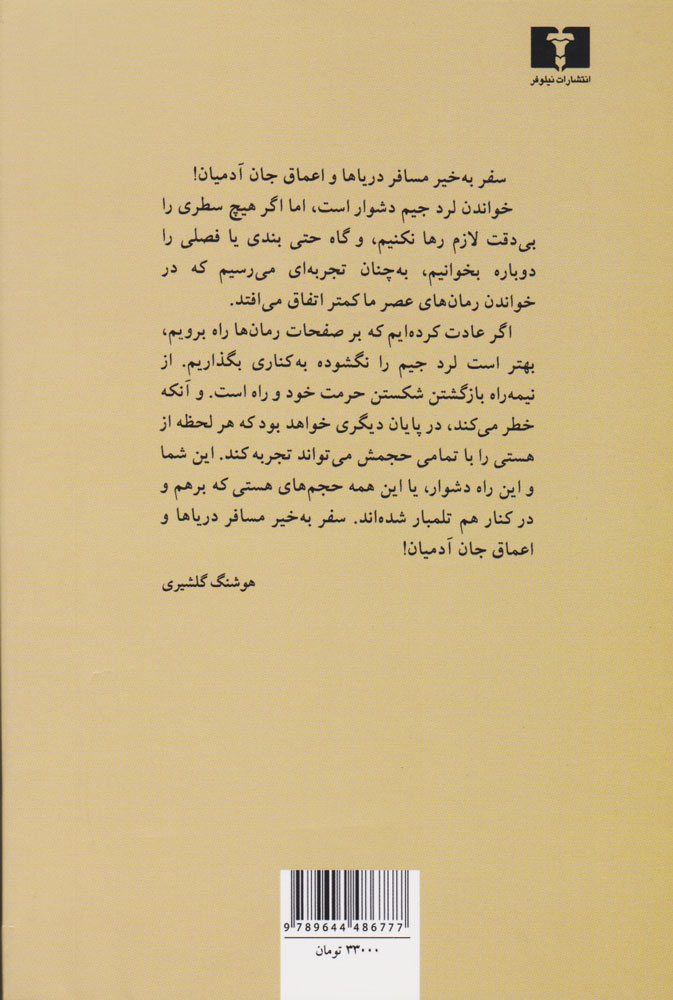 انتشارات نیلوفر
سفر به‌خیر مسافر دریاها و اعماق جان آدمیان!
خواندن لرد جیم دشوار است، اما اگر هیچ سطری را
بی‌دقت لازم رها نکنیم، و گاه حتی بندی یا فصلی را
دوباره بخوانیم، به‌چنان تجربه‌ای می‌رسیم که در
خواندن رمان‌های عصر ما کمتر اتفاق می‌افتد.
اگر عادت کرده‌ایم که بر صفحات رمان‌ها راه برویم،
بهتر است لرد جیم را نگشوده به‌کناری بگذاریم. از
نیمه‌راه بازگشتن شکستن حرمت خود و راه است. و آنکه
خطر می‌کند، در پایان دیگری خواهد بود که هر لحظه از
هستی را با تمامی حجمش می‌تواند تجربه کند. این شما
و این راه دشوار، یا این همه حجم‌های هستی که برهم و
در کنار هم تلمبار شده‌اند. سفر به‌خیر مسافر دریاها و
اعماق جان آدمیان!
هوشنگ گلشیری
9 789644 486777
۳۳۰۰۰ تومان